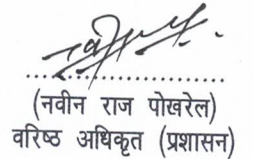 (नवीन राज पोखरेल)
वरिष्ठ अधिकृत (प्रशासन)